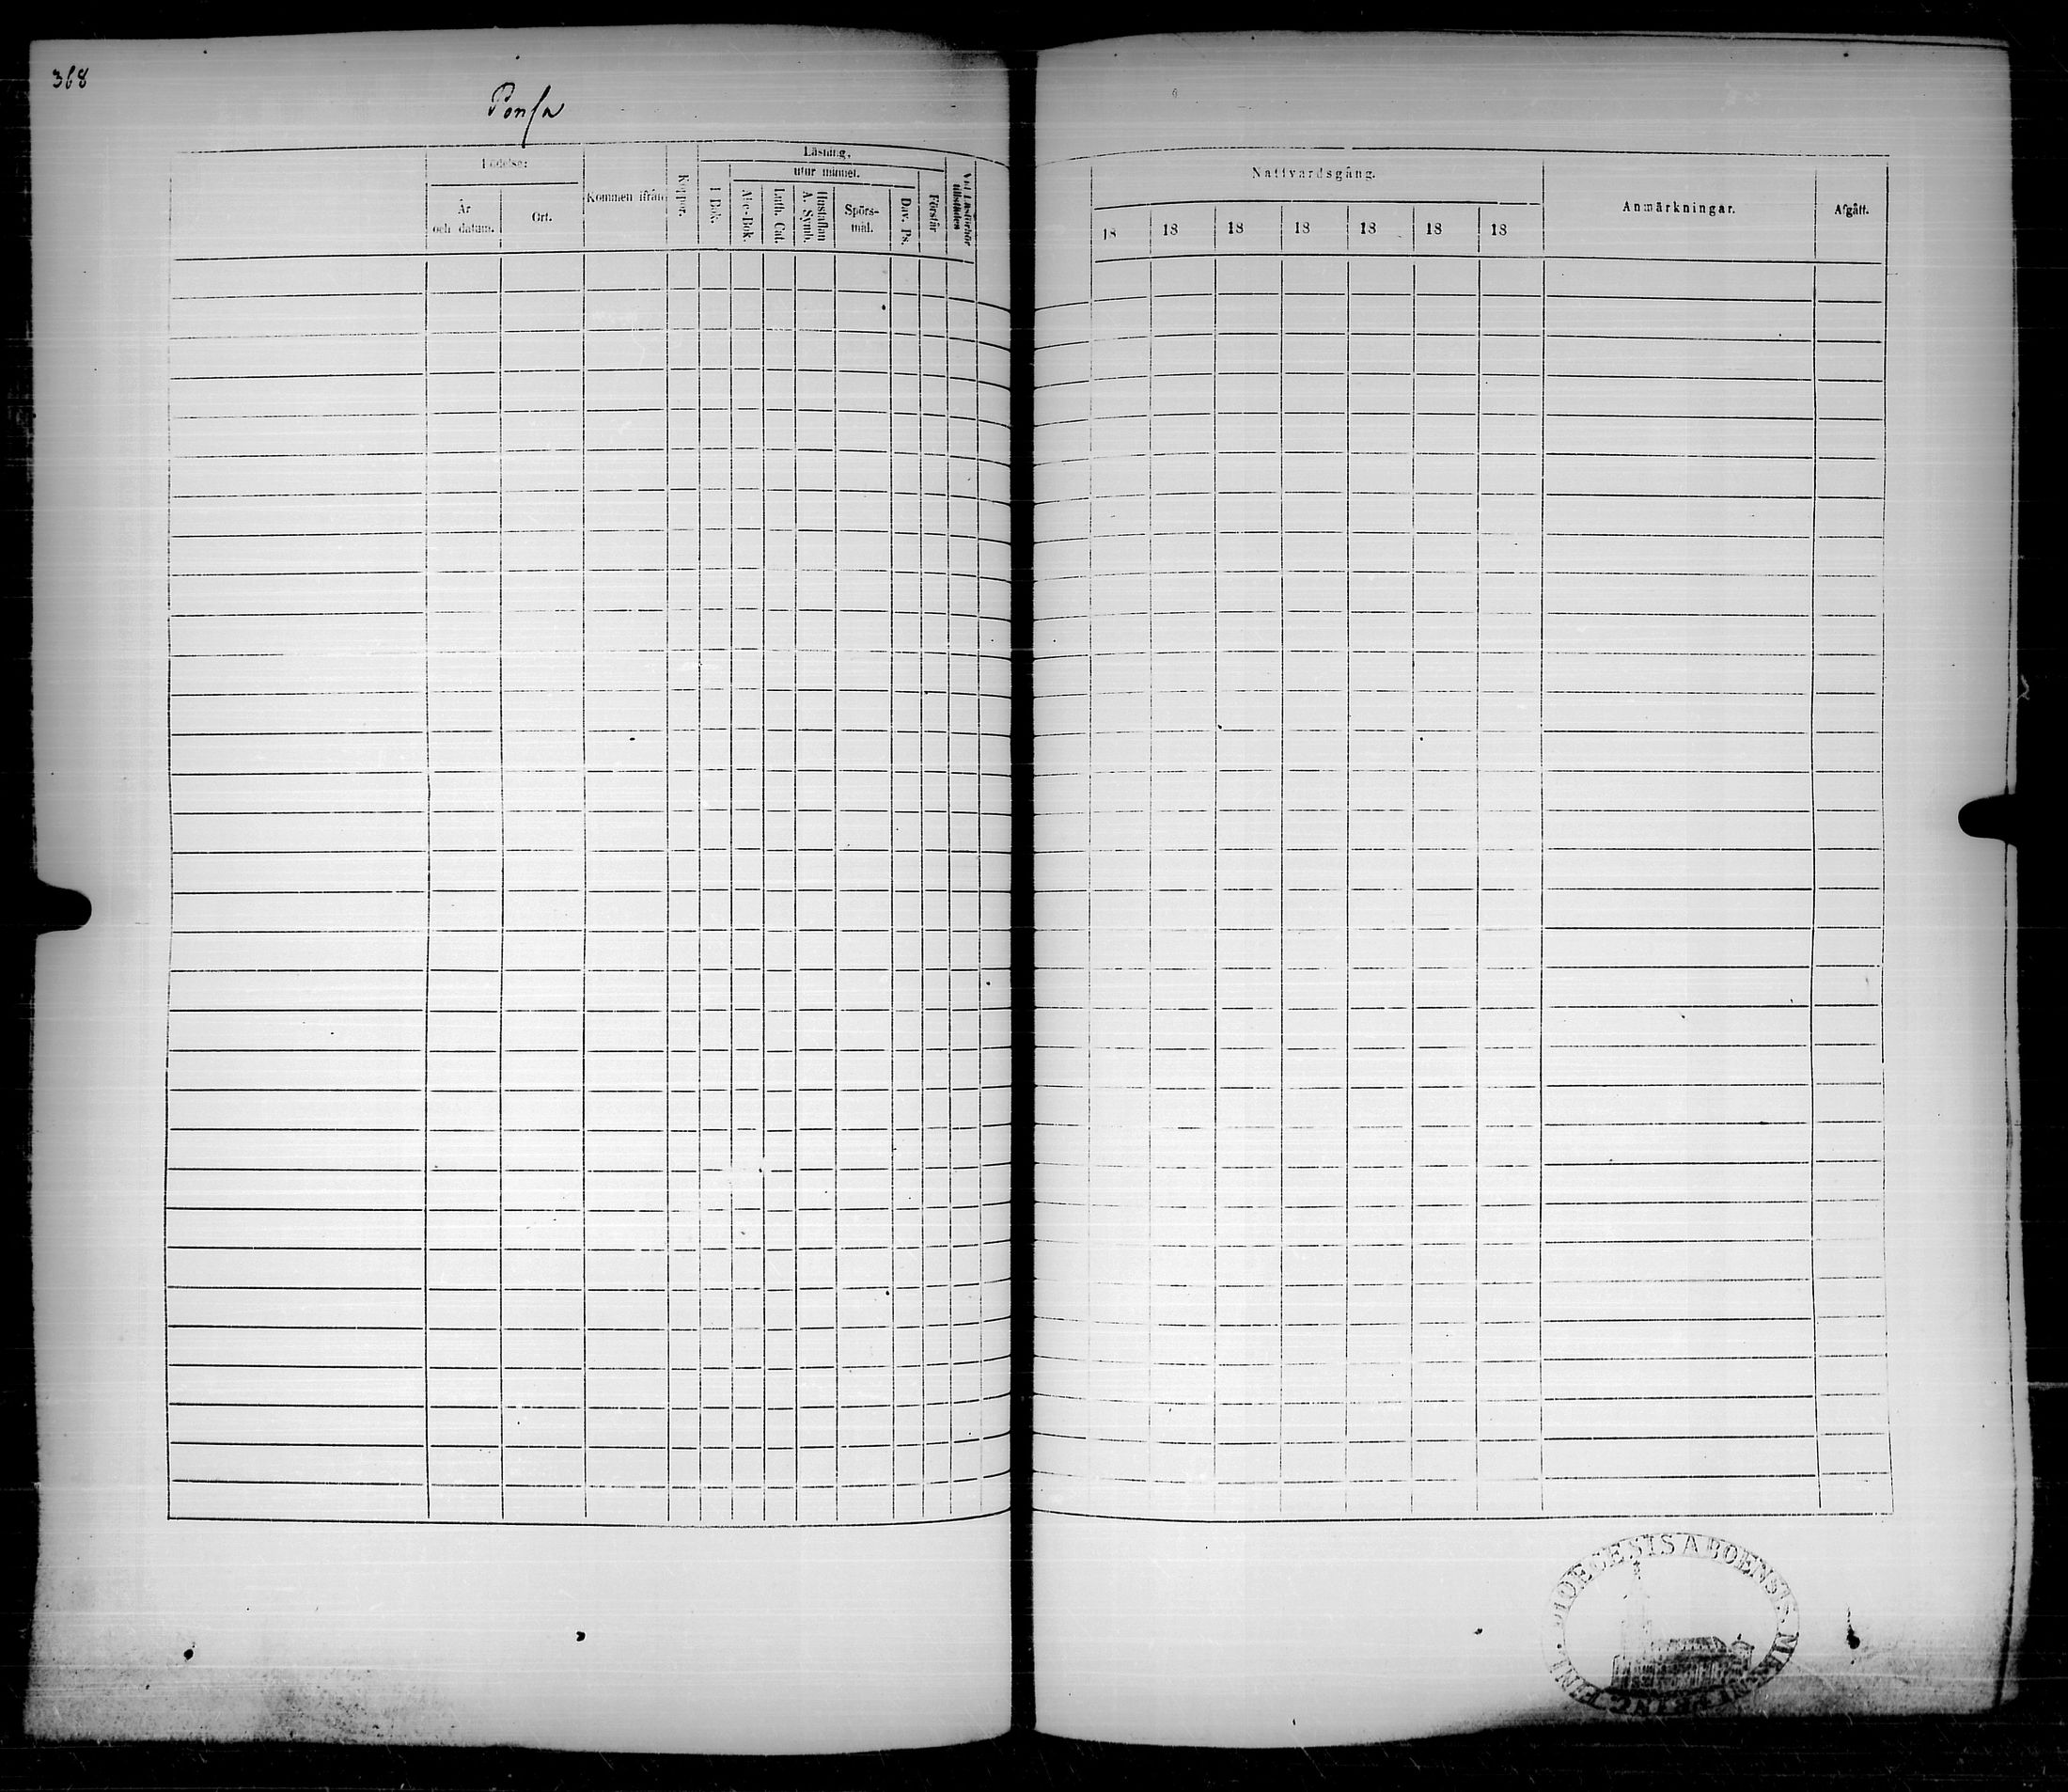 368
Ponsa
Födelse:
År och datum.
Ort.
Kommen ifrån
Koppor.
Läsning,
utur minnet.
I Bok.
Abc-Bok.
Luth. Cat.
Hustaflan A. Symb.
Spörs-mål.
Dav. Ps.
Förstår
Vid Läsförhör tillstädes
Nattvardsgång.
18 18 18 18 18 18 18
Anmärkningar.
Afgått.
DIOECESIS ABOENSIS